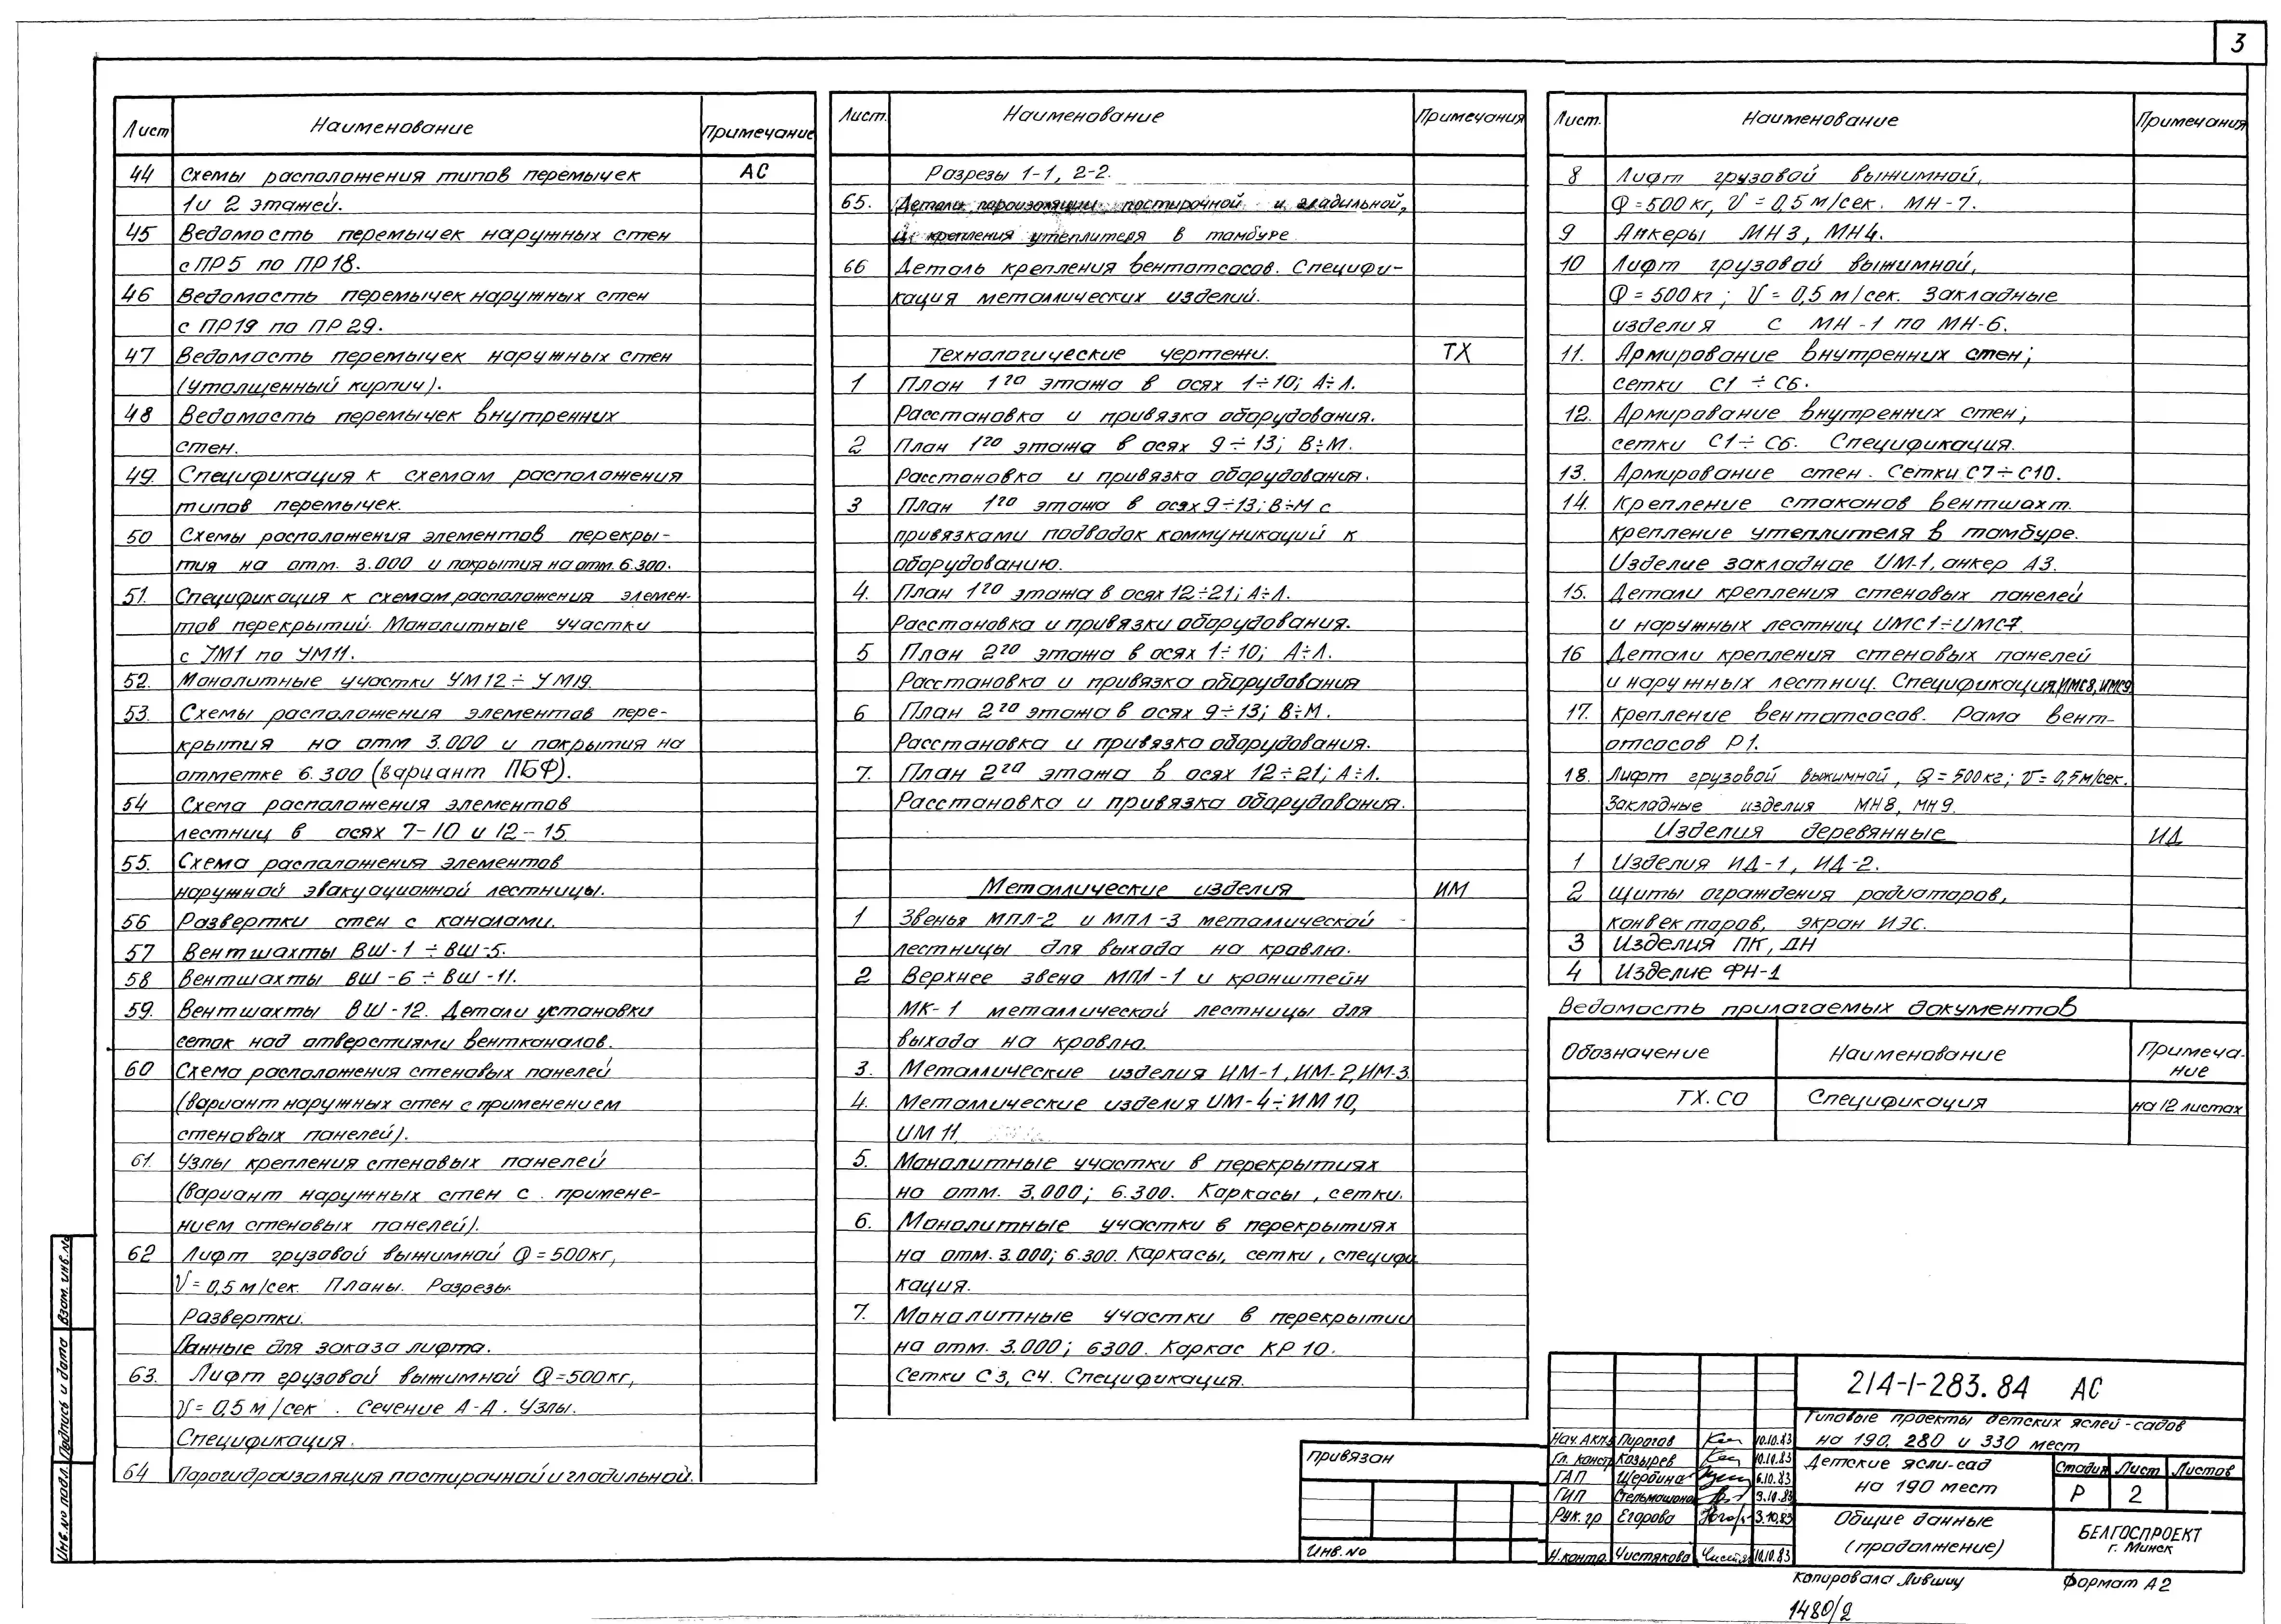 3
Лист Наименование Примечание
44 Схемы расположения типов перемычек АС
1 и 2 этажей.
45 Ведомость перемычек наружных стен
с ПР5 по ПР18.
46 Ведомость перемычек наружных стен
с ПР19 по ПР29.
47 Ведомость перемычек наружных стен
(утолщенный кирпич).
48 Ведомость перемычек внутренних
стен.
49. Спецификация к схемам расположения
типов перемычек.
50 Схемы расположения элементов перекры-
тия на отм. 3.000 и покрытия на отм. 6.300.
51. Спецификация к схемам расположения элемен-
тов перекрытий. Монолитные участки
с УМ1 по УМ11.
52. Монолитные участки УМ12÷УМ19.
53. Схемы расположения элементов пере-
крытия на отм 3.000 и покрытия на
отметке 6.300 (вариант ПБФ).
54 Схема расположения элементов
лестниц в осях 7-10 и 12-15
55. Схема расположения элементов
наружной эвакуационной лестницы.
56 Развертки стен с каналами.
57 Вентшахты ВШ-1 ÷ ВШ-5.
58 Вентшахты ВШ-6 ÷ ВШ-11.
59. Вентшахты ВШ-12. Детали установки
сеток над отверстиями вентканалов.
60 Схема расположения стеновых панелей
(вариант наружных стен с применением
стеновых панелей).
61. Узлы крепления стеновых панелей
(вариант наружных стен с примене-
нием стеновых панелей).
62 Лифт грузовой выжимной Q=500кг,
V=0,5 м/сек. Планы. Разрезы.
Развертки.
Данные для заказа лифта.
63. Лифт грузовой выжимной Q=500кг,
V=0,5 м/сек. Сечение А-А. Узлы.
Спецификация.
64 Парогидроизоляция постирочной и гладильной.
Лист. Наименование Примечания
Разрезы 1-1, 2-2.
65. Детали пароизоляции постирочной и гладильной,
и крепления утеплителя в тамбуре.
66 Деталь крепления вентотсосов. Специфи-
кация металлических изделий.
Технологические чертежи. ТХ
1 План 1го этажа в осях 1÷10; А÷Л.
Расстановка и привязка оборудования.
2 План 1го этажа в осях 9÷13; В÷М.
Расстановка и привязка оборудования.
3 План 1го этажа в осях 9÷13; В÷М с
привязками подводок коммуникаций к
оборудованию.
4. План 1го этажа в осях 12÷21; А÷Л.
Расстановка и привязки оборудования.
5 План 2го этажа в осях 1÷10; А÷Л.
Расстановка и привязка оборудования
6 План 2го этажа в осях 9÷13; В÷М.
Расстановка и привязка оборудования.
7. План 2го этажа в осях 12÷21; А÷Л.
Расстановка и привязка оборудования.
Металлические изделия ИМ
1 Звенья МПЛ-2 и МПЛ-3 металлической
лестницы для выхода на кровлю.
2 Верхнее звено МПЛ-1 и кронштейн
МК-1 металлической лестницы для
выхода на кровлю.
3. Металлические изделия ИМ-1, ИМ-2, ИМ-3.
4. Металлические изделия ИМ-4÷ИМ10,
ИМ11.
5. Монолитные участки в перекрытиях
на отм. 3,000; 6.300. Каркасы, сетки.
6. Монолитные участки в перекрытиях
на отм. 3.000; 6.300. Каркасы, сетки, специфи
кация.
7. Монолитные участки в перекрытии
на отм. 3.000; 6300. Каркас КР10.
Сетки С3, С4. Спецификация.
Лист. Наименование Примечания
8 Лифт грузовой выжимной,
Q=500кг, V=0,5м/сек. МН-7.
9 Анкеры МН3, МН4.
10 Лифт грузовой выжимной,
Q=500кг; V=0,5 м/сек. Закладные
изделия с МН-1 по МН-6.
11. Армирование внутренних стен;
сетки С1 ÷ С6.
12. Армирование внутренних стен;
сетки С1÷С6. Спецификация.
13. Армирование стен. Сетки С7÷С10.
14. Крепление стаканов вентшахт.
крепление утеплителя в тамбуре.
Изделие закладное ИМ-1, анкер А3.
15. Детали крепления стеновых панелей
и наружных лестниц ИМС1÷ИМС7.
16 Детали крепления стеновых панелей
и наружных лестниц. Спецификация, ИМС8, ИМС9
17. Крепление вентотсосов. Рама вент-
отсосов Р1.
18. Лифт грузовой выжимной, Q=500кг; V=0,5м/сек.
Закладные изделия МН8, МН9.
Изделия деревянные ИД
1 Изделия ИД-1, ИД-2.
2 Щиты ограждения радиаторов,
конвекторов, экран ИЭС.
3 Изделия ПК, ДН
4 Изделие ФН-1
Ведомость прилагаемых документов
Обозначение Наименование Примеча-
ние
ТХ.СО Спецификация на 12 листах
214-1-283.84 АС
Типовые проекты детских яслей-садов
на 190, 280 и 330 мест
Нач. АКМ3 Пирогов 10.10.83
Гл. констр Козырев 10.10.83
ГАП Щербина 6.10.83
ГИП 3.10.83
Рук. гр Егорова 3.10.83
Н.контр. Чистякова 10.10.83
Детские ясли-сад
на 190 мест
Стадия Лист Листов
Р 2
Общие данные
(продолжение)
БЕЛГОСПРОЕКТ
г. Минск
Привязан
Инв. №
Копировала Лившиц Формат А2
1480/2
Взам. инв. №
Подпись и дата
Инв. № подл.